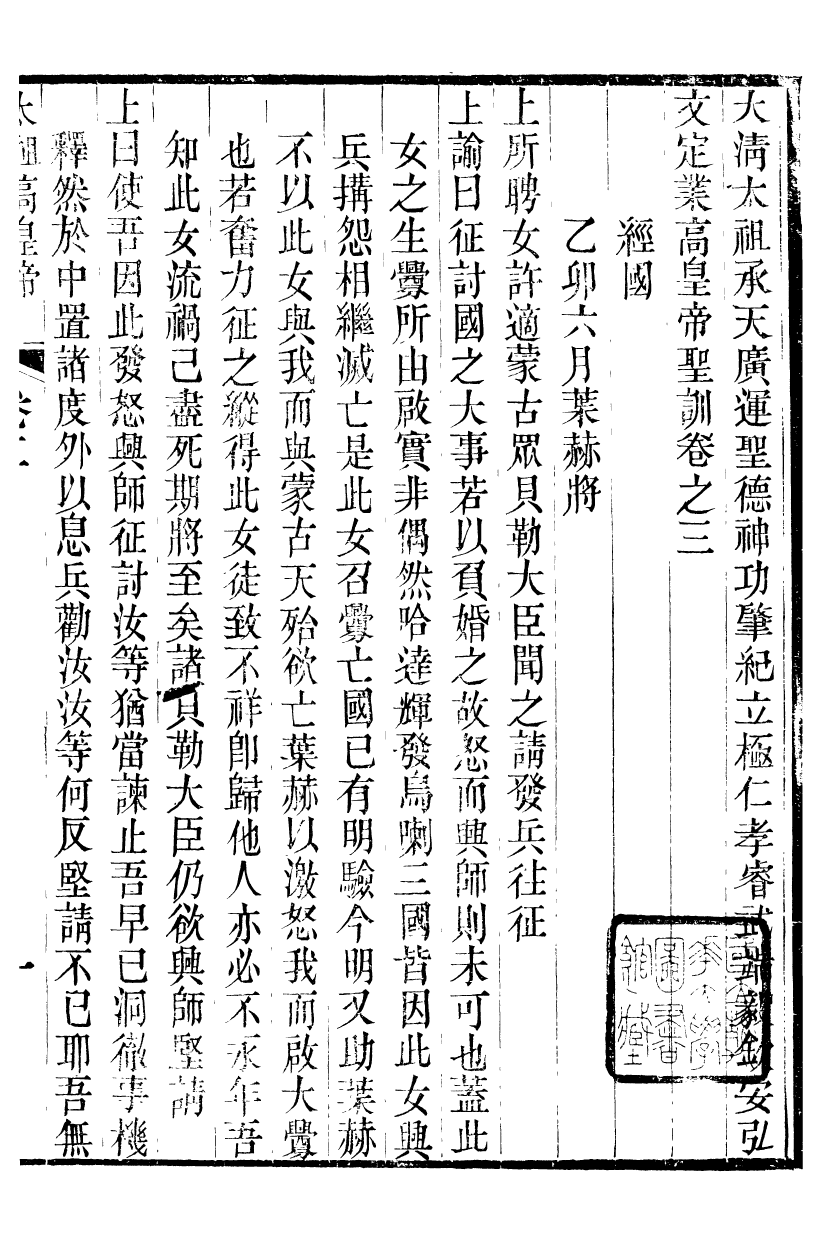 大清太祖承天廣運聖德神功肇紀立極仁孝睿武端毅欽安弘
文定業高皇帝聖訓卷之三
經國
乙卯六月葉赫將
上所聘女許適蒙古眾貝勒大臣聞之請發兵往征
上諭曰征討國之大事若以負婚之故怒而興師則未可也蓋此
女之生釁所由啟實非偶然哈達輝發烏喇三國皆因此女興
兵搆怨相繼滅亡是此女召釁亡國已有明驗今明又助葉赫
不以此女與我而與蒙古天殆欲亡葉赫以激怒我而啟大釁
也若奮力征之縱得此女徒致不祥卽歸他人亦必不永年吾
知此女流禍己盡死期將至矣諸貝勒大臣仍欲興師堅請
上曰使吾因此發怒興師征討汝等猶當諫止吾早已洞徹事機
釋然於中置諸度外以息兵勸汝汝等何反堅請不已耶吾無
太祖高皇帝 一